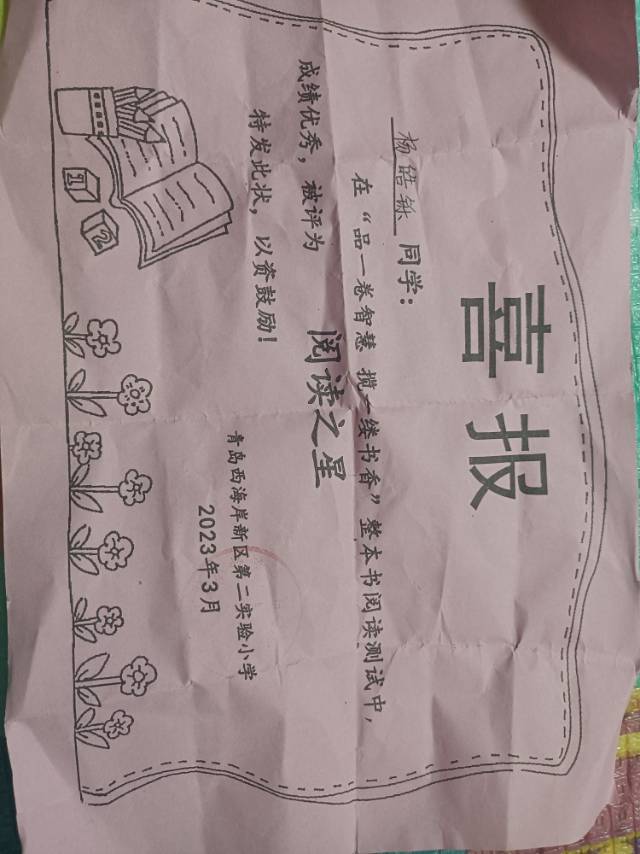 喜报
杨皓铄 同学：
在“品一卷智慧 揽一缕书香”整本书阅读测试中，
成绩优秀，被评为 阅读之星
特发此状，以资鼓励！
青岛西海岸新区第二实验小学
2023年3月
1
2